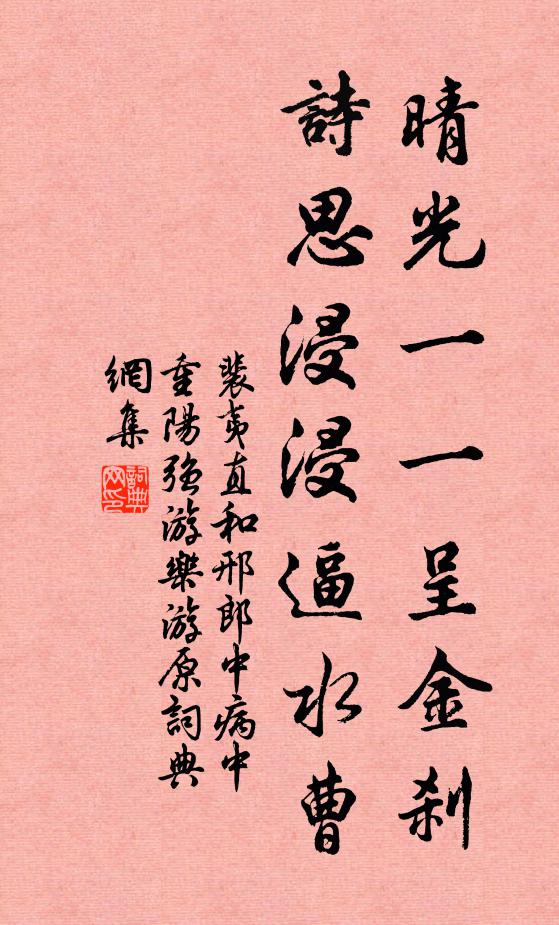 晴光一一呈金刹
詩思浸浸逼水曹
裴夷直和邢郎中病中
重陽强游樂游原詞典
網集
詞典網印